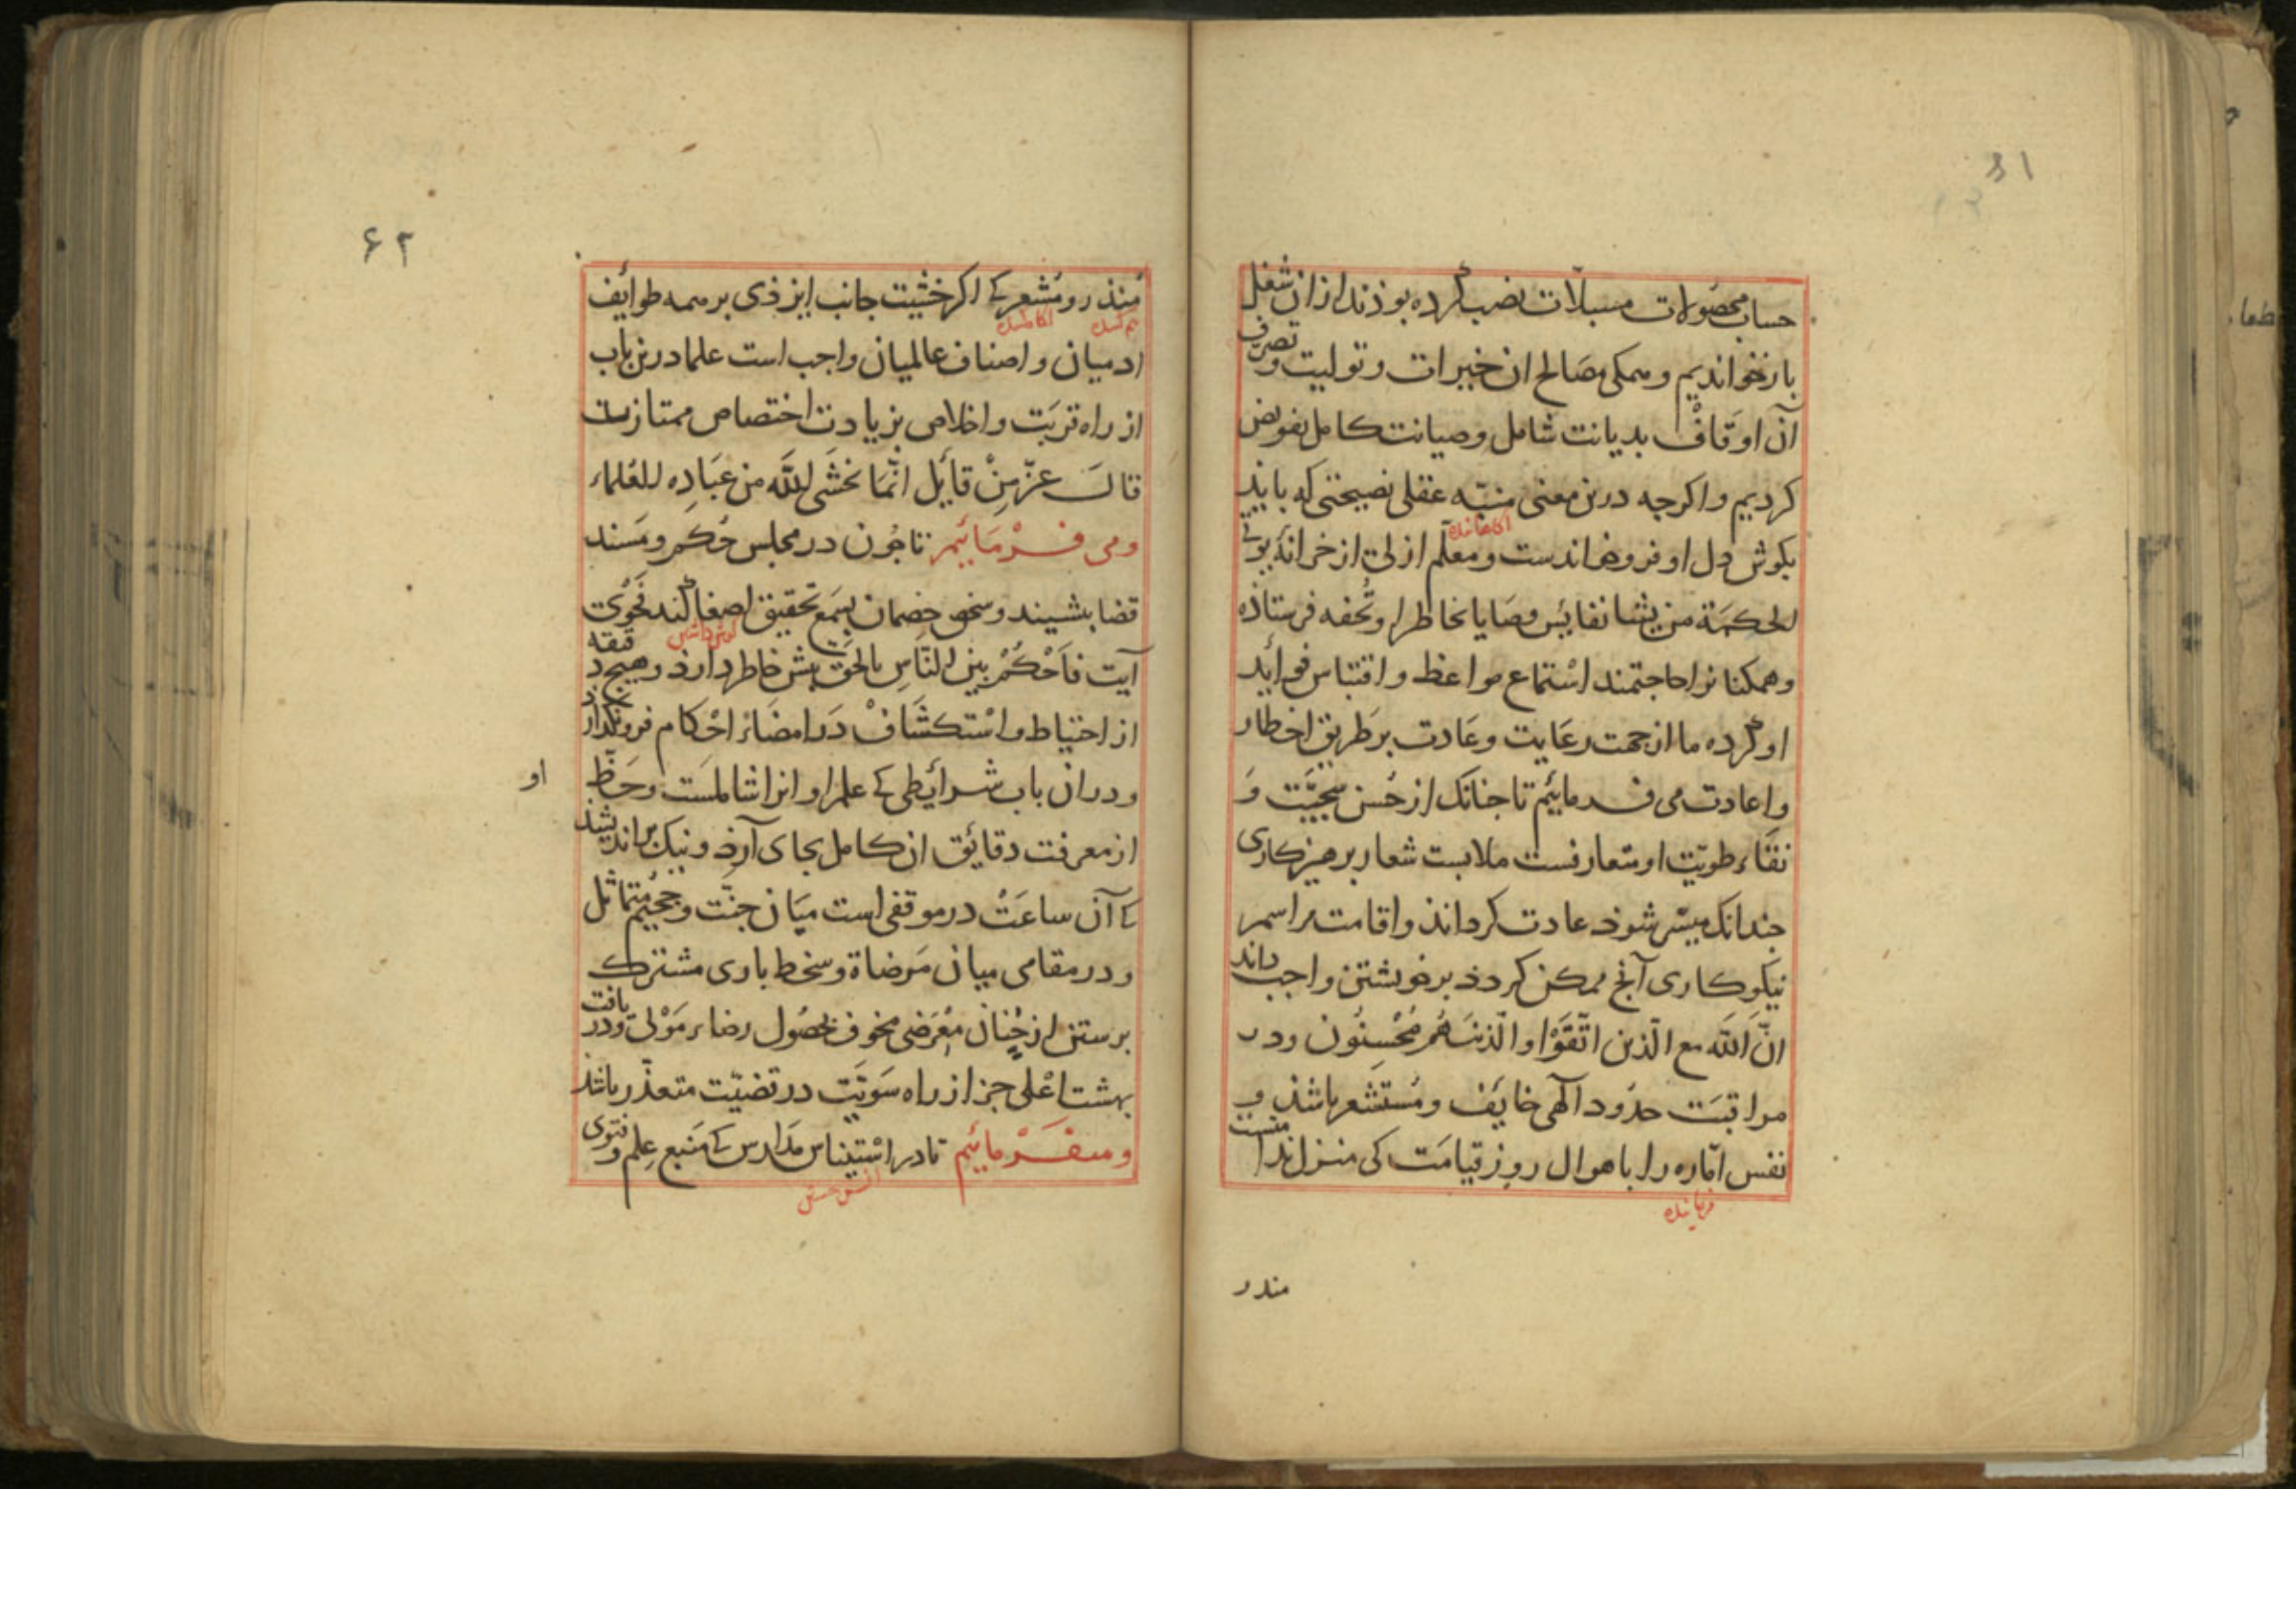 حساب محصولات مسبلات نصب کرده بوذند از ان شغل
بازخواندیم و همکی مصالح ان خیرات و تولیت و تصرف
آن اوقاف بدیانت شامل و صیانت کامل تفویض
کردیم و اکرچه درین معنی منبّه عقلی نصیحتی که بایذ
آکاهاننده
بکوش دل او فروخواندست و معلّم ازلی از خزانهٔ یوتی
الحکمَة من یشا نفایس وصایا بخاطر او تُحفه فرستاذه
و همکنانرا حاجتمند استماع مواعظ و اقتباس فوائد
او کرده ما از جهت رعایت و عادت بر طریق اخطار
و اعادت می فرمائیم تا جنانک از حُسن سجیّت وَ
نقاء طویّت او متعارفست ملابست شعار برهیزکاری
جندانک میسّر شوذ عادت کرداند و اقامت مراسم
نیکوکاری آنج ممکن کردذ بر خویشتن واجب داند
انّ الله مع الّذین اتّقَوْا و الّذینَ هُم مُحْسِنُون و در
مراقبَت حدُود آلهی خایف و مُستشعر باشذ و
نفس امّاره را باهوال روز قیامت کی منزل
منذر
۶۲
مُنذر و مُشعر کی اکر خشیت جانب ایزذی بر همه طوایف
ادمیان و اصناف عالمیان واجب است علما درین باب
از راه قربَت و اخلاص بزیادت اختصاص ممتازست
قالَ عزّ مِنْ قایل انّما یخشَی اللهَ من عبَادِه العُلماء
و می فرْمَائیم تا جُون در مجلس حُکم و مَسند
قضا بنشیند و سخن خصمان بسَمع تحقیق اصغا کند فحوی
آیت فاَحْکُمْ بین النّاسِ بالحَق بیش خاطر دارذ و هیج دقیقه
از احتیاط و اسْتکشَافْ دَر امضَاء احکام فرونکذارد
و در ان باب شرائطی کی علم او انرا شاملست و حَظّ
او
از معرفت دقائق ان کامل بجای آرذ و نیک براندیشد
کی آن ساعَتْ در موقفی است میَان جنّت و جحیم مُتماثل
و در مقامی میان مَرضاة و سخط باری مشترک
برستن از جُنان مَعْرَضی مخوف بحصُول رضاء مَوْلی و در یافت
بهشت اعْلی جز از راه سَویّت در قضیّت متعذّر باشذ
و میفرْمائیم تا در استیناس مدارس کی مَنبع علم و فتوی